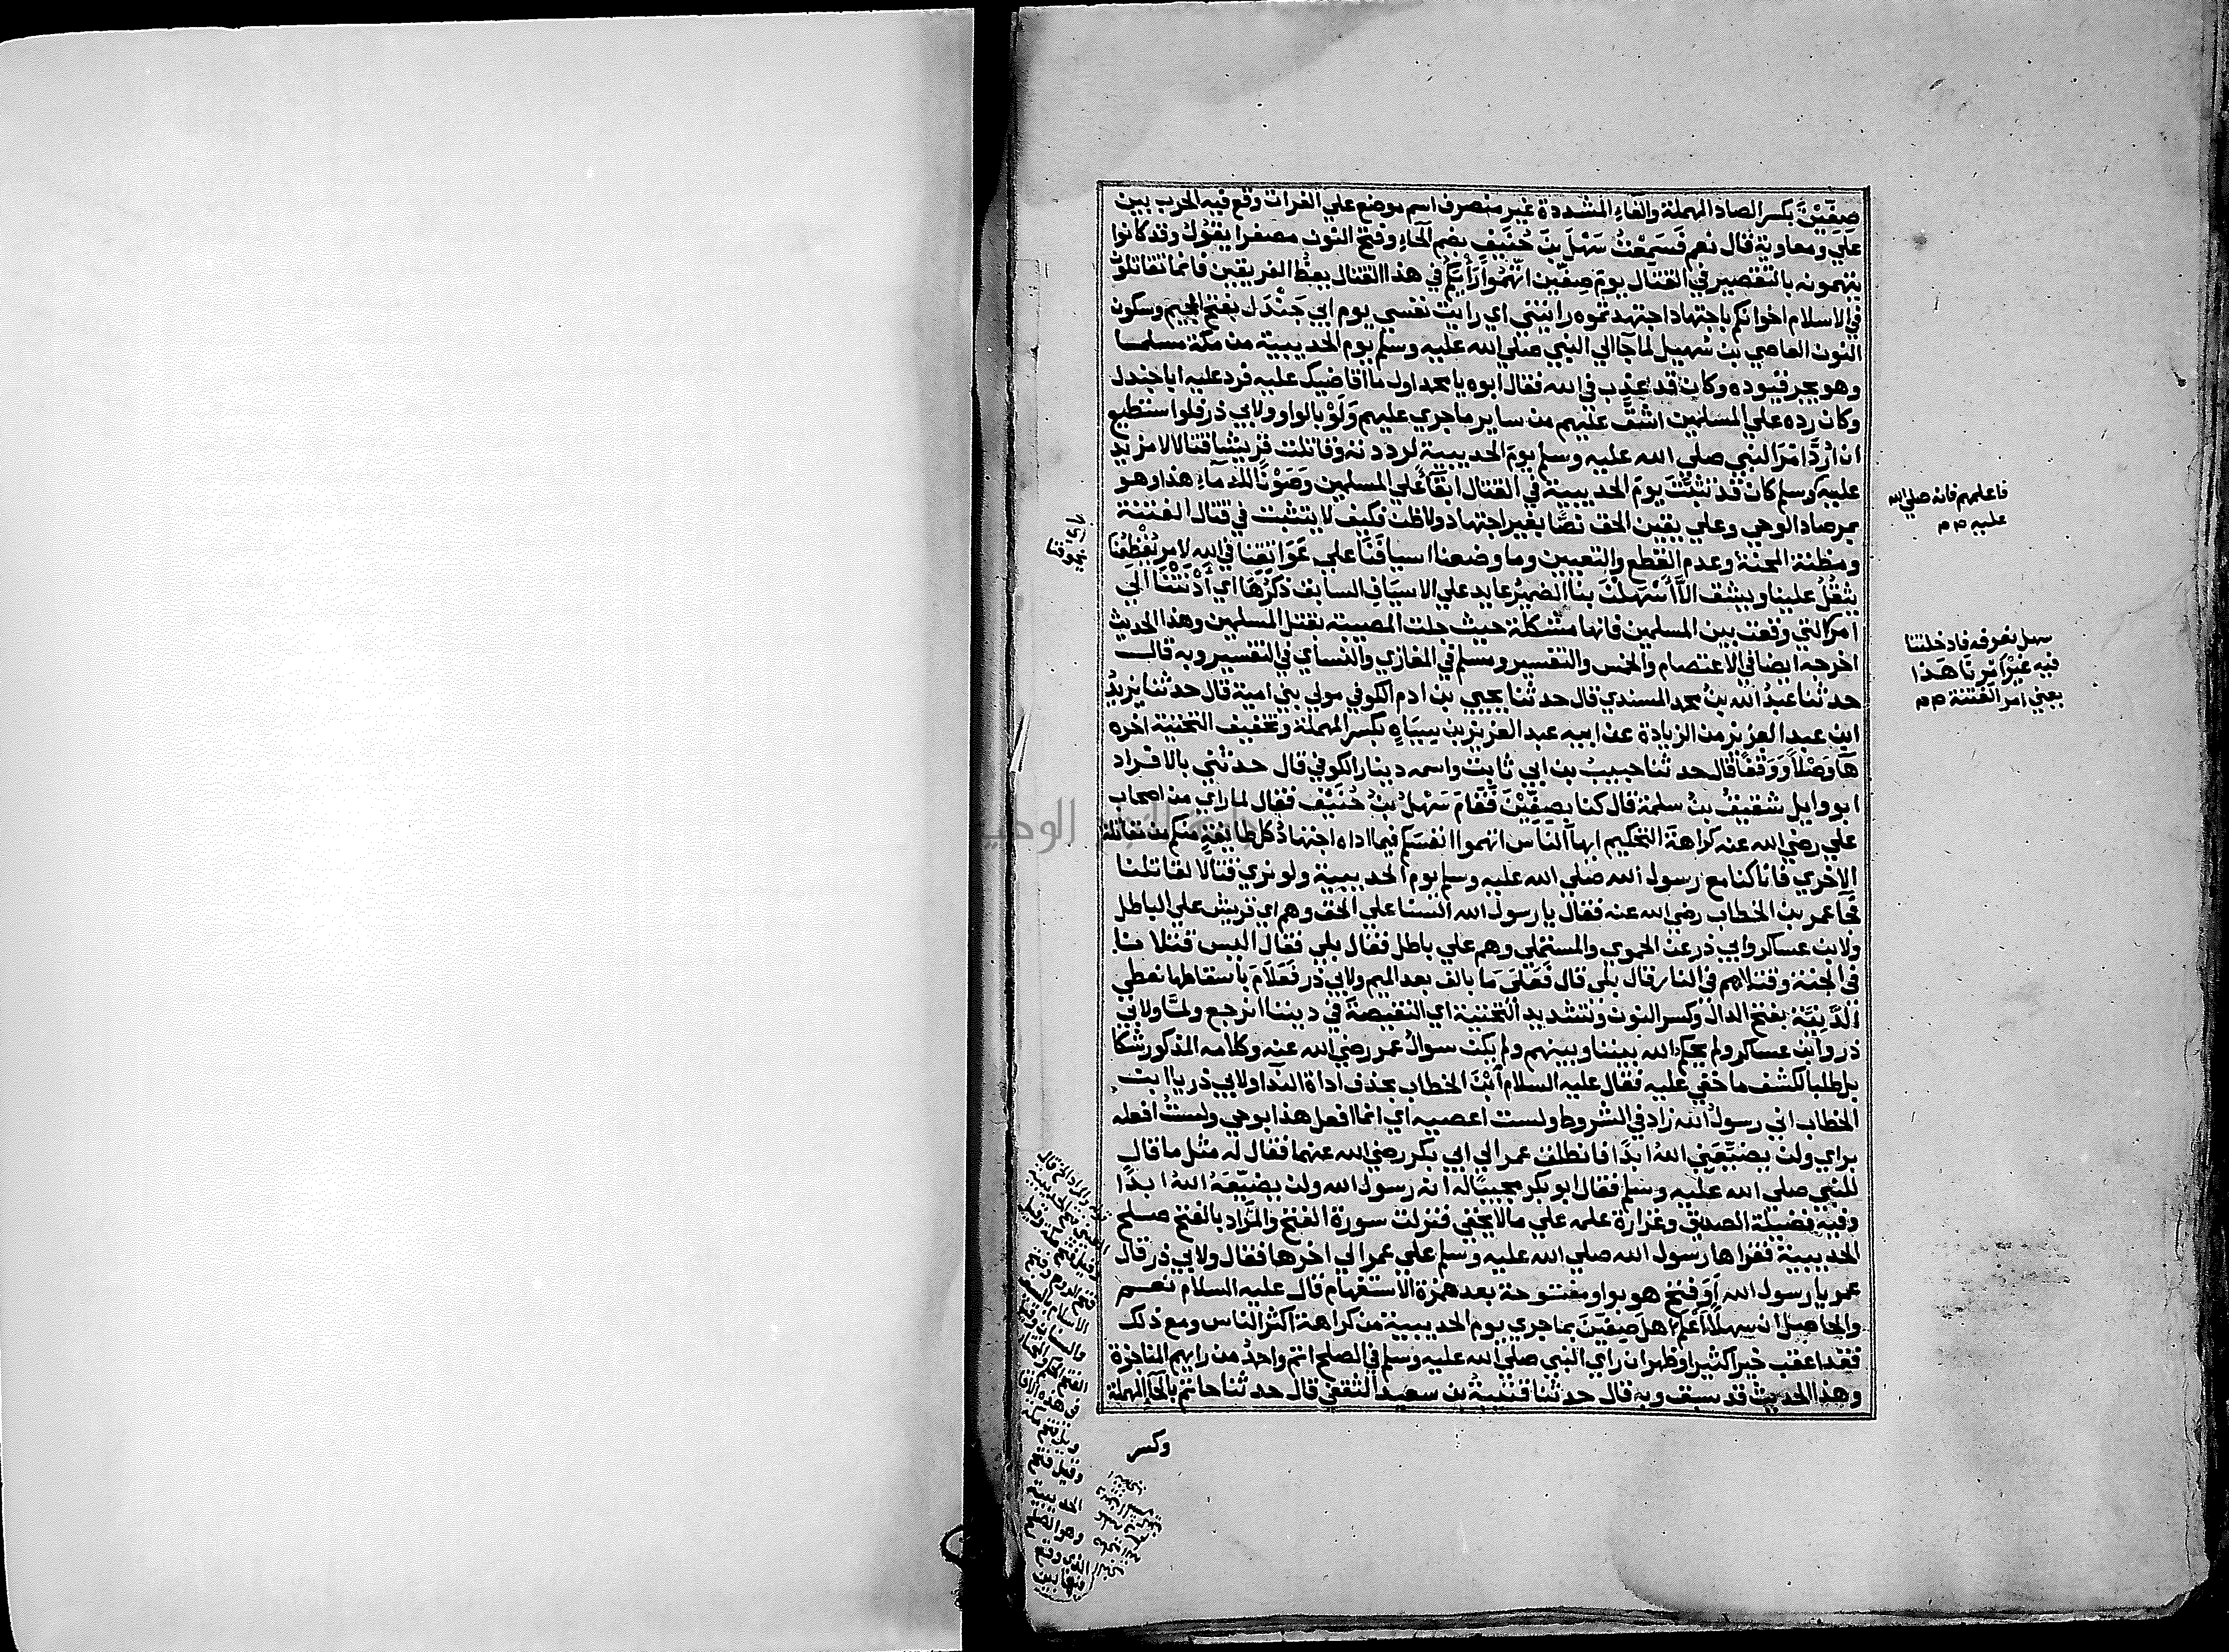 صِفِّيْنَ بكسر الصاد المهملة والفاء المشددة غير منصرف اسم موضع علي الفرات وقع فيه الحرب بين
علي ومعاوية قال نعم فَسَمِعْتُ سَهْلَ بنَ حُنَيْفٍ بضم الحاء وفتح النون مصغرا يقول وقد كانوا
يتهمونه بالتقصير في القتال يوم صِفِّين اتَّهِمُوا رَأيَكُم في هذا القتال يعظ الفريقين فانما تقاتلون
في الاسلام اخوانكم باجتهاد اجتهدتموه رايتني اي رايت نفسي يوم ابي جَنْدَل بفتح الجيم وسكون
النون العاصي بن سهيل لما جا الي النبي صلي الله عليه وسلم يوم الحديبية من مكة مسلما
وهو يجر قيوده وكان قد عذب في الله فقال ابوه يا محمد اول ما اقاضيك عليه فرد عليه ابا جندل
وكان رده علي المسلمين اشق عليهم من ساير ما جري عليهم وَلَوْ بالواو ولابي ذر فلو استطيع
ان اردَّ امْرَ النبي صلي الله عليه وسلم يوم الحديبية لرددته وقاتلت قريشا قتالا لا مزيد
عليه وسلم كان قد تثبَّتَ يوم الحديبية في القتال ابقاءً علي المسلمين وَصَوْنًا للدماء هذا وهو
بمرصاد الوحي وعلي يقين الحق نصًّا بغير اجتهاد ولا ظن فكيف لا يتثبت في قتال الفتنة
ومظنة المحنة وعدم القطع والتعيين وما وضعنا اسيافَنَا علي عَوَاتِقِنا في الله لامرٍ يُفْظِعُنا
يثقُل علينا ويشق الَّا أَسْهَلْنَ بنا الضمير عايد علي الاسياف السابق ذكرُهَا اي أَدْنَتْنَا الي
امر التي وقعت بين المسلمين فانها مشكلة حيث جلت المصيبة بقتل المسلمين وهذا الحديث
اخرجه ايضا في الاعتصام والخمس والتفسير ومسلم في المغازي والنساي في التفسير وبه قال
حدثنا عبدُ الله بنُ محمد المسندي قال حدثنا يحيي بن ادم الكوفي مولي بني امية قال حدثنا يزيدُ
ابن عبد العزيز من الزيادة عن ابيه عبد العزيز بن سِيَاهٍ بكسر المهملة وتخفيف التحتية اخره
هَا وَصْلًا وَوَقْفًا قال حدثنا حبيبُ بن ابي ثابت واسمه دينار الكوفي قال حدثني بالافراد
ابو وايل شقيقُ بنُ سلمة قال كنا بصِفِّيْنَ فَقَامَ سَهْلُ بنُ حُنَيْف فقال لما راي من اصحاب
علي رضي الله عنه كراهةَ التحكيم ايها الناس اتهموا انفسَكم فيما اداه اجتهادُ كل طائفةٍ منكم من مقاتلة
الاخري فانا كنا مع رسول الله صلي الله عليه وسلم يوم الحديبية ولو نري قتالًا لقاتلنا
فجاء عمر بن الخطاب رضي الله عنه فقال يا رسول الله السنا علي الحق وهم اي قريش علي الباطل
ولابن عساكر وابي ذر عن الحموي والمستملي وهم علي باطل فقال بلي فقال اليس قتلانا
في الجنة وقتلاهم في النار قال بلي قال فَعَلَي مَا بالف بعد الميم ولابي ذر فَعَلَامَ باسقاطها نعطي
الدَّنِيَّةَ بفتح الدال وكسر النون وتشديد التحتية اي النقيصة في ديننا انرجع ولمَّا ولابي
ذر وابن عساكر ولم يحكم الله بيننا وبينهم ولم يكن سوال عمر رضي الله عنه وكلامه المذكور شكا
بل طلبا لكشف ما خفي عليه فقال عليه السلام ابْنَ الخطاب بحذف اداة الندا ولابي ذر يا ابن
الخطاب اني رسول الله زاد في الشروط ولست اعصيه اي انما افعل هذا بوحي ولستُ افعله
براي ولن يضيِّعَني اللهُ ابدًا فانطلق عمر الي ابي بكر رضي الله عنهما فقال له مثل ما قال
للنبي صلي الله عليه وسلم فقال ابو بكر مجيبًا له انه رسول الله ولن يضيِّعَهُ اللهُ ابدًا
وفيه فضيلة الصديق وغزارة علمه علي ما لا يخفي فنزلت سورة الفتح والمراد بالفتح صلح
الحديبية فقراها رسول الله صلي الله عليه وسلم علي عمر الي اخرها فقال ولابي ذر قال
عمر يا رسول الله أَوَفتح هو بواو مفتوحة بعد همزة الاستفهام قال عليه السلام نعم
والحاصل ان سهلًا أَعْلَمَ اهلَ صِفِّيْنَ بما جري يوم الحديبية من كراهة اكثر الناس ومع ذلك
فقد اعقب خيرا كثيرا وظهر ان راي النبي صلي الله عليه وسلم في الصلح اتم واحمدُ من رايهم المناجزة
وهذا الحديث قد سبق وبه قال حدثنا قتيبةُ بن سعيد الثقفي قال حدثنا حاتم بالحاء المهملة
وكسر
فاعلمهم فانه صلي الله
عليه صم
سهل نعرفه فادخلتنا
فيه غيرَ امْرِنَا هَذا
يعني امر الفتنة صم
فتح الروم وقيل فتح
وقيل فتح
الحديبية
وهو الصلح
الذي وقع